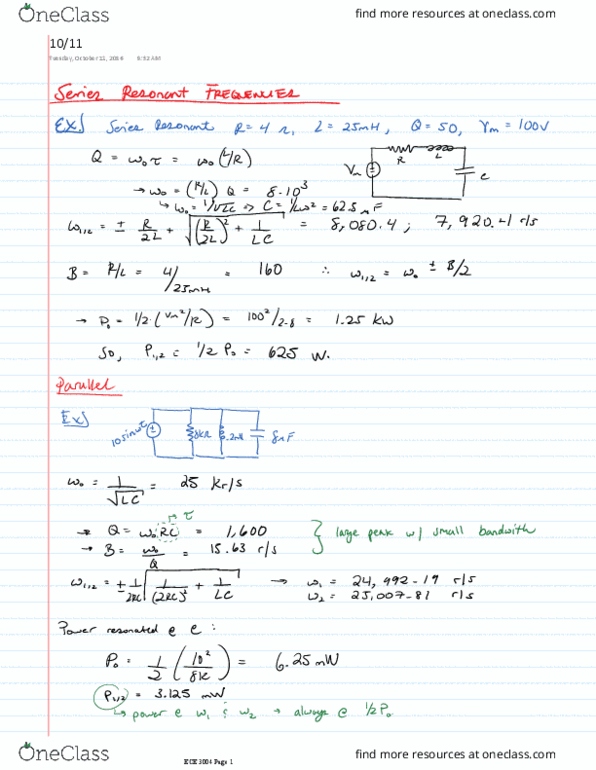 OneClass
find more resources at oneclass.com
10/11
Tuesday, October 11, 2014 9:52 AM
Series Resonant FREQUENCIES
Ex] Series Resonant R=4 Ω, L=25mH, Q=50, Vm=100V
Q = ω₀τ = ω₀(L/R)
Vm R L C
→ ω₀ = (R/L) Q = 8·10³
↳ ω₀ = 1/√LC ⇒ C = 1/Lω² = 62.5 F
ω₁,₂ = ± R/2L + √((R/2L)² + 1/LC) = 8,080.4 ; 7,920.4 r/s
B = R/L = 4/25mH = 160 ∴ ω₁,₂ = ω₀ ± B/2
→ P₀ = 1/2·(Vm²/R) = 100²/2·8 = 1.25 kW
So, P₁,₂ = 1/2 P₀ = 625 W.
Parallel
Ex]
10sinωt 8kΩ .2mH 8μF
ω₀ = 1/√LC = 25 kr/s
→ τ
→ Q = ω₀RC = 1,600
→ B = ω₀/Q = 15.63 r/s
} large peak w/ small bandwith
ω₁,₂ = ± 1/2RC √(1/(2RC)² + 1/LC) → ω₁ = 24,992.19 r/s
ω₂ = 25,007.81 r/s
Power resonated @ e :
P₀ = 1/2 (10²/8k) = 6.25 mW
P₁,₂ = 3.125 mW
↳ power @ ω₁ & ω₂ → always @ 1/2 P₀
OneClass
ECE 3004 Page 1
find more resources at oneclass.com